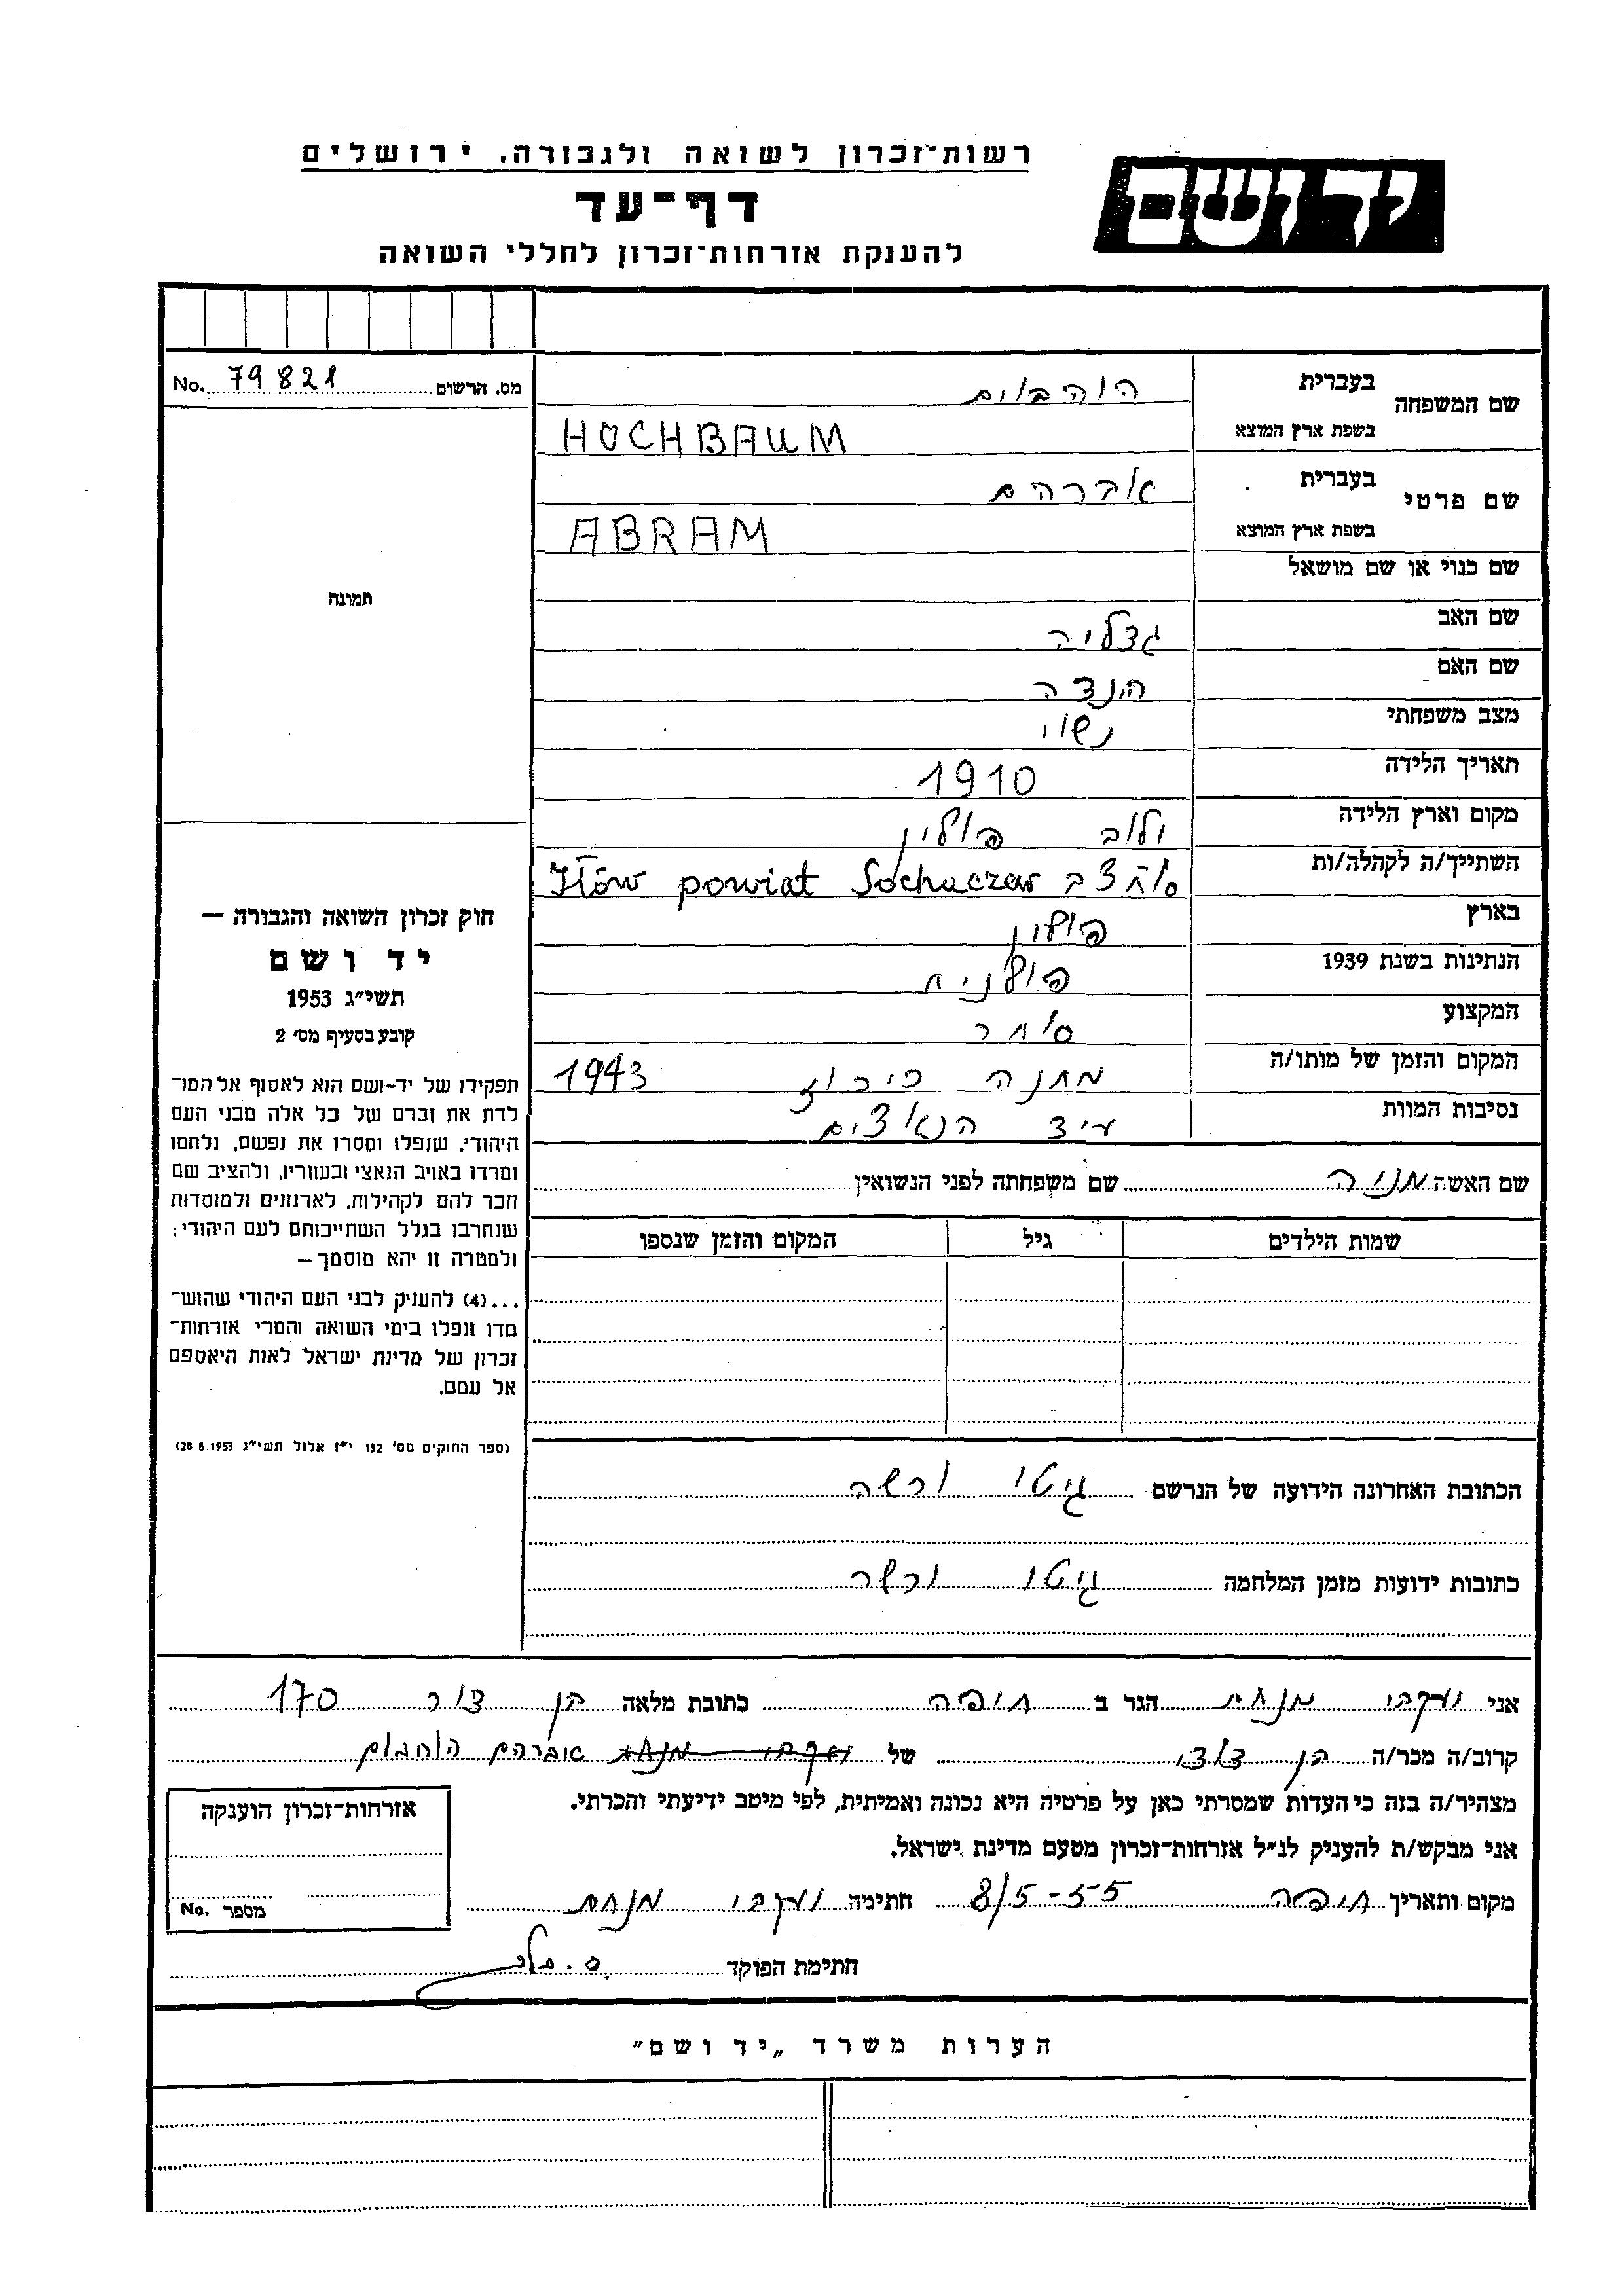 רשות־זכרון לשואה ולגבורה, ירושלים
יד ושם
דף־עד
להענקת אזרחות־זכרון לחללי השואה
מס. הרשום 79821 No.
שם המשפחה בעברית הוהבוים
בשפת ארץ המוצא HOCHBAUM
שם פרטי בעברית אברהם
בשפת ארץ המוצא ABRAM
שם כנוי או שם מושאל
שם האב גדליה
שם האם הנדה
מצב משפחתי נשוי
תאריך הלידה 1910
מקום וארץ הלידה ילוב פולין
השתייך/ה לקהלה/ות Iłów powiat Sochaczew
בארץ פולין
הנתינות בשנת 1939 פולנית
המקצוע סוחר
המקום והזמן של מותו/ה מחנה ריכוז 1943
נסיבות המוות ע״י הנאצים
שם האשה מניה שם משפחתה לפני הנשואין
שמות הילדים גיל המקום והזמן שנספו
הכתובת האחרונה הידועה של הנרשם גיטו ורשה
כתובות ידועות מזמן המלחמה גיטו ורשה
תמונה
חוק זכרון השואה והגבורה —
יד ושם
תשי״ג 1953
קובע בסעיף מס׳ 2
תפקידו של יד-ושם הוא לאסוף אל המו־
לדת את זכרם של כל אלה מבני העם
היהודי, שנפלו ומסרו את נפשם, נלחמו
ומרדו באויב הנאצי ובעוזריו, ולהציב שם
וזכר להם לקהילות, לארגונים ולמוסדות
שנחרבו בגלל השתייכותם לעם היהודי;
ולמטרה זו יהא מוסמך—
...(4) להעניק לבני העם היהודי שהוש־
מדו ונפלו בימי השואה והמרי אזרחות־
זכרון של מדינת ישראל לאות היאספם
אל עמם.
(ספר החוקים מס׳ 132 י״ז אלול תשי״ג 28.8.1953)
אני יעקבי מנחם הגר ב חיפה כתובת מלאה בן צור 170
קרוב/ה מכר/ה בן דודו של אברהם הוחבום
מצהיר/ה בזה כי העדות שמסרתי כאן על פרטיה היא נכונה ואמיתית, לפי מיטב ידיעתי והכרתי.
אני מבקש/ת להעניק לנ״ל אזרחות־זכרון מטעם מדינת ישראל.
מקום ותאריך חיפה 8/5-55 חתימה יעקבי מנחם
חתימת הפוקד
אזרחות־זכרון הוענקה
מספר No.
הערות משרד „יד ושם״